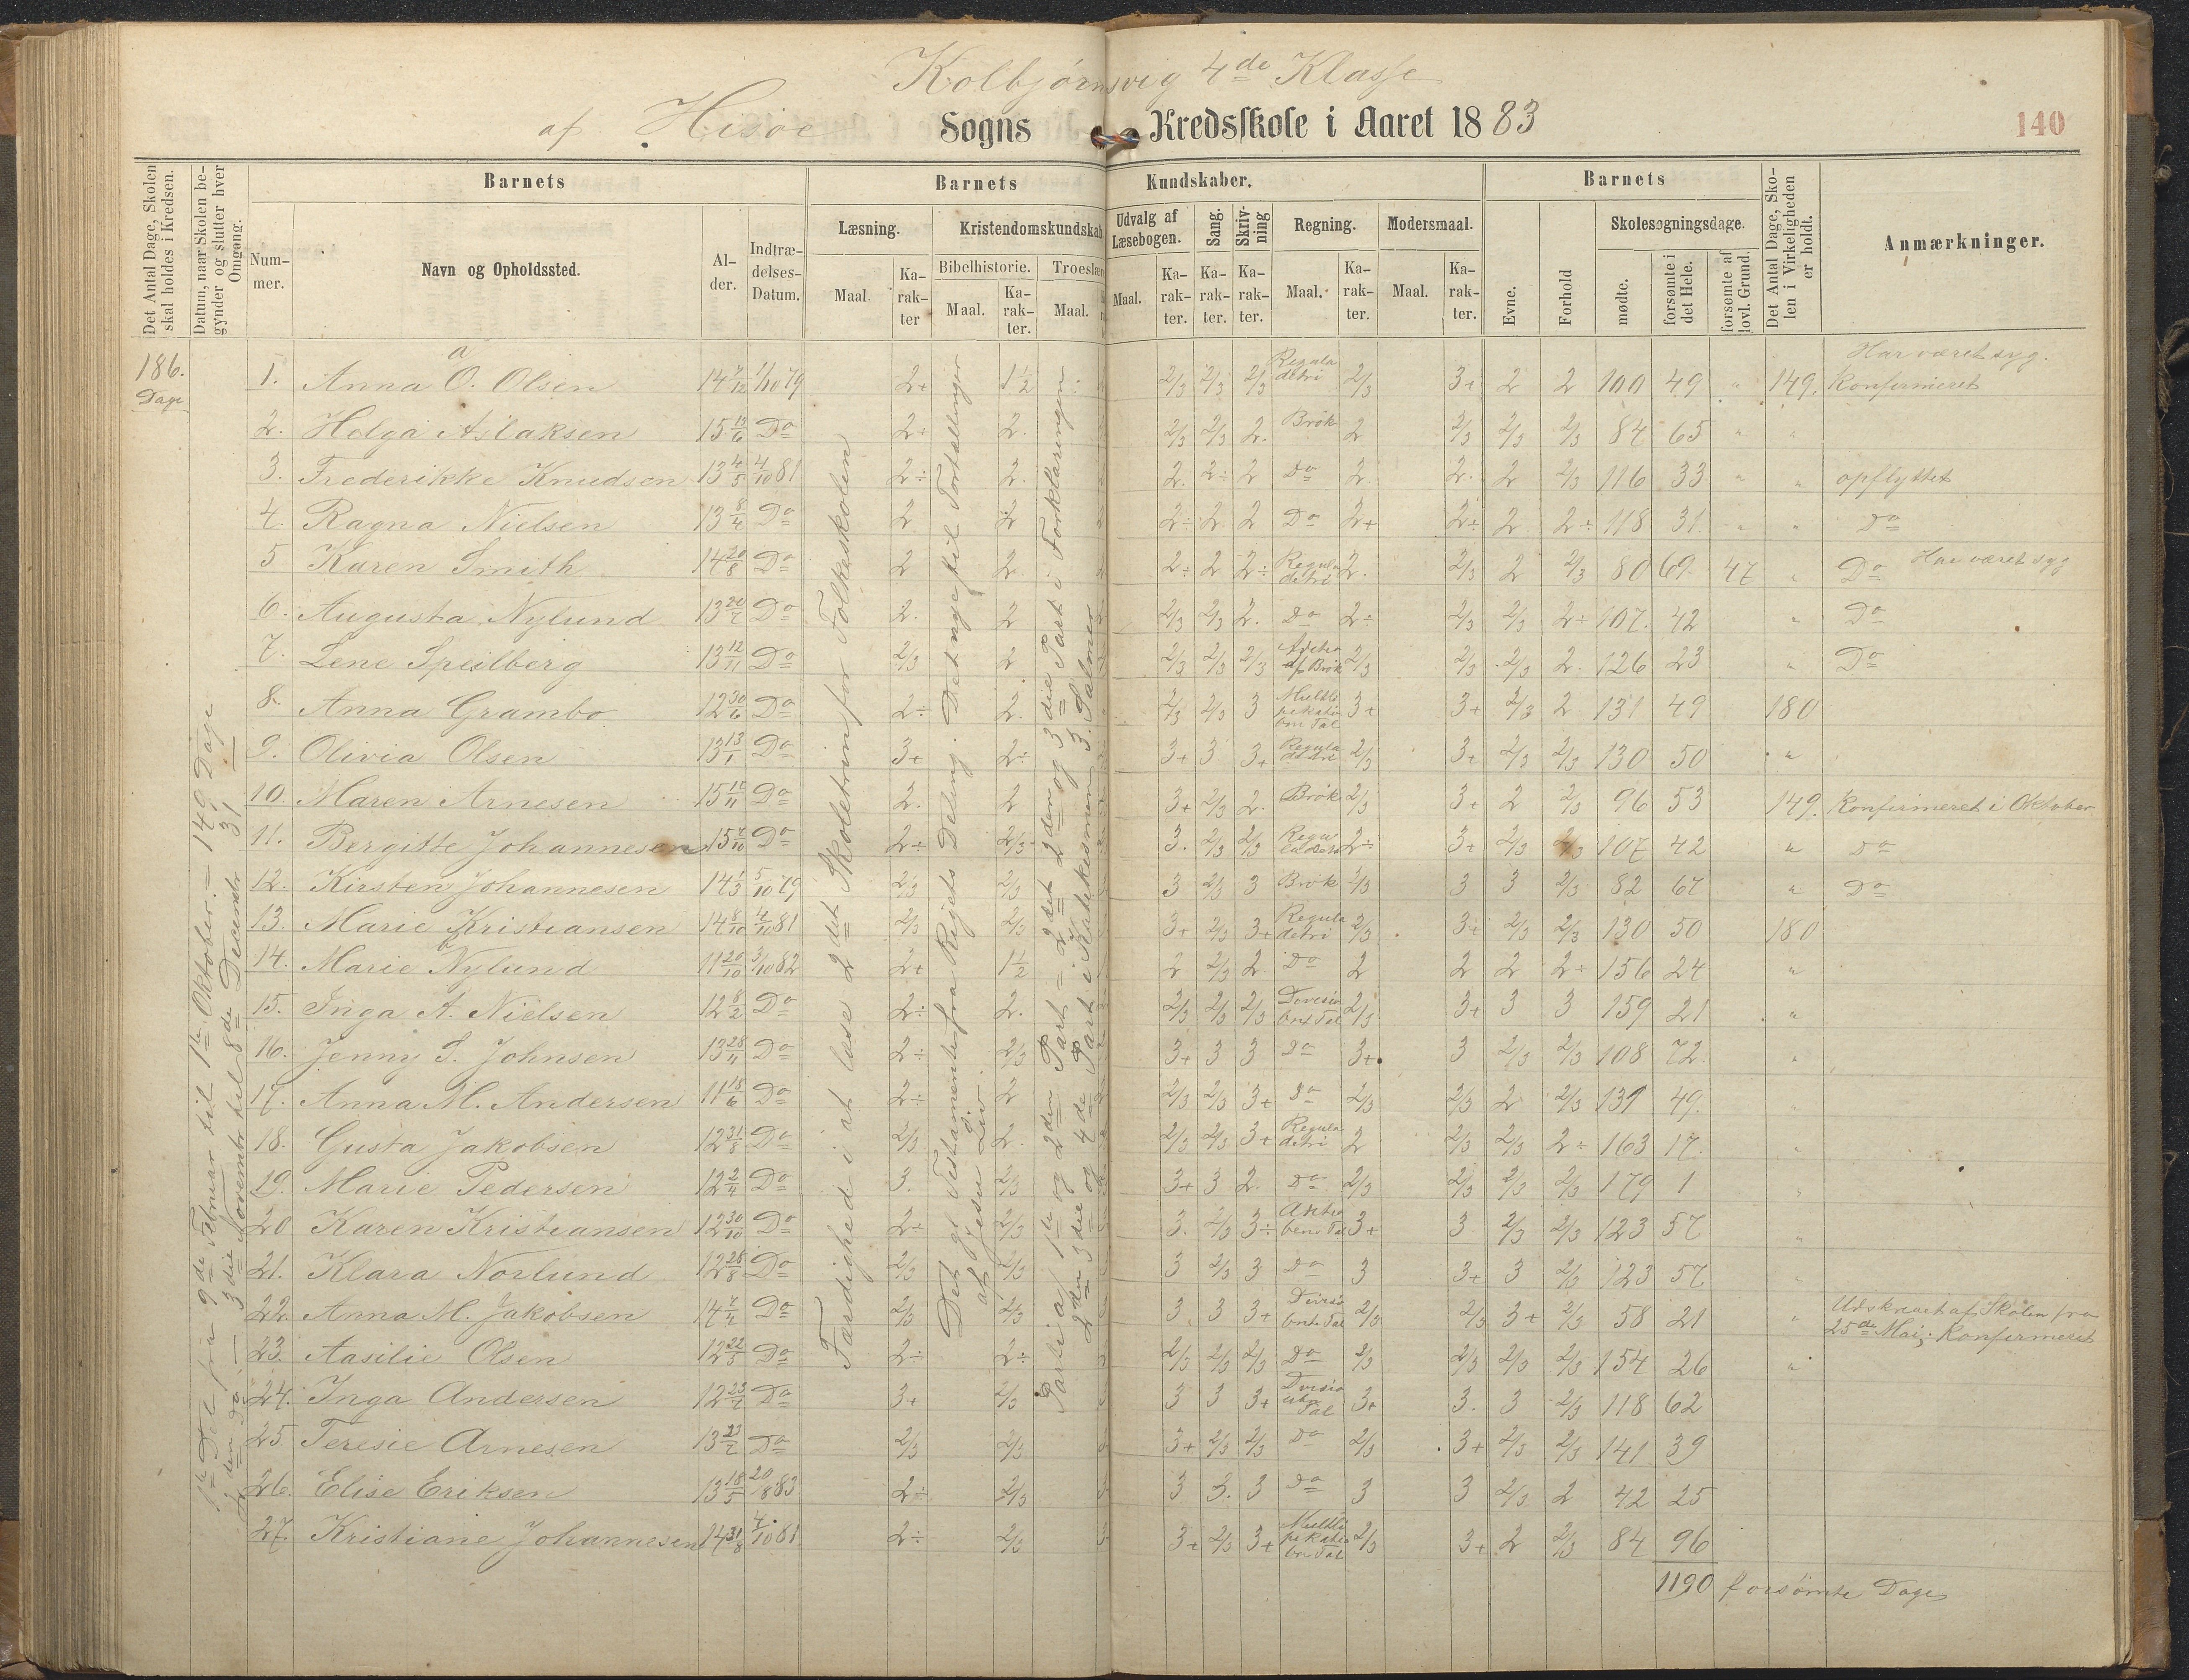 Kolbjørnsvig 4de Klasse
af Hisøe Sogns Kredsskole i Aaret 1883
140
Det Antal Dage, Skolen skal holdes i Kredsen.
Datum, naar Skolen begynder og slutter hver Omgang.
Barnets
Nummer.
Navn og Opholdssted.
Alder.
Indtrædelses-Datum.
Barnets Kundskaber.
Læsning.
Maal.
Karakter
Kristendomskundskab
Bibelhistorie.
Maal.
Karakter.
Troeslære
Maal.
Udvalg af Læsebogen.
Maal.
Karakter.
Sang.
Karakter.
Skrivning
Karakter.
Regning.
Maal.
Karakter.
Modersmaal.
Maal.
Karakter.
Barnets
Evne.
Forhold
Skolesøgningsdage.
mødte.
forsømte i det Hele.
forsømte af lovl. Grund.
Det Antal Dage, Skolen i Virkeligheden er holdt.
Anmærkninger.
186. Dage
1ste Del fra 9de Februar til 1ste Oktober. — 149 Dage
2den Do. — 3die Novembr til 8de Decembr 31
Færdighed i at læse 2det Skoletrin for Folkeskolen
Det gl. Testamente fra Rigets Deling. Det nye til Fortællinger
af Jesu Liv.
Parti a 1ste og 2den Part = 2det 2den og 3die Part i Forklaringen
2den 3die og 4de Part i Katekismen 3 Salmer
1. Anna O. Olsen 14 7/12 1/10 79 2+ 1½ 2/3 2/3 2/3 Regula detri 2/3 3+ 2 2 100 49 " 149. Har været syg. Konfirmeret
2. Helga Aslaksen 15 13/6 Do 2+ 2. 2/3 2/3 2. Brøk 2 2/3 2/3 2/3 84 65 " "
3. Frederikke Knudsen 13 4/5 4/10 81 2÷ 2. 2. 2÷ 2 Do 2. 2. 2 2/3 116 33 " " opflyttet
4. Ragna Nielsen 13 8/4 Do 2 2 2÷ 2 2 Do 2+ 2÷ 2 2÷ 118 31. " " Do
5 Karen Smith 14 20/8 Do 2 2. 2÷ 2 2÷ Regula detri 2. 2/3 2 2/3 80 69. 47 " Do Har været syg
6. Augusta Nylund 13 20/7 Do 2. 2 2/3 2/3 2. Do 2÷ 2/3 2/3 2÷ 107. 42 " Do
7. Lene Speilberg 13 12/11 Do 2/3 2 2/3 2/3 2/3 af Brøk 2/3 2/3 2/3 2. 126 23 " Do
8. Anna Grambo 12 30/6 Do 2÷ 2. 2/3 2/3 3 3+ 3+ 2/3 2 131 49 180
9. Olivia Olsen 13 13/1 Do 3+ 2÷ 3+ 3 3+ Regula detri 2/3 3+ 2/3 2/3 130 50 "
10. Maren Arnesen 15 Do 2. 2 3+ 2/3 2. Brøk 2/3 3+ 2 2/3 96 53 149. Konfirmeret i Oktober
11. Bergitte Johannesen 15 7/10 Do 2÷ 2/3 3. 2/3 2/3 2÷ 3+ 2/3 2/3 107 42 " Do
12. Kirsten Johannesen 14 1/3 5/10 79 2/3 2/3 3 2/3 3 Brøk 2/3 3 3 2/3 82 67 " Do
13. Marie Kristiansen 14 8/10 4/10 81 2/3 2/3 3+ 2/3 3+ Regula detri 2/3 3+ 2/3 2/3 130 50 180
14. Marie Nylund 11 20/10 3/10 82 2+ 1½ 2 2/3 2 Do 2 2 2 2÷ 156 24 "
15. Inga A. Nielsen 12 8/2 Do 2÷ 2. 2/3 2/3 2/3 2/3 3+ 3 3 159 21 "
16. Jenny S. Johnsen 13 28/11 Do 2÷ 2/3 3+ 3 3 Do 3+ 3 2/3 2/3 108 72. "
17. Anna M. Andersen 11 18/6 Do 2÷ 2 2/3 2/3 3+ Do 2/3 2/3 2 2/3 131 49. "
18. Gusta Jakobsen 12 31/8 Do 2/3 2. 2/3 2/3 3+ Regula detri 2 2/3 2/3 2÷ 163 17. "
19. Marie Pedersen 12 2/4 Do 3. 2/3 3+ 3 2. Do 2/3 2/3 2/3 2/3 179 1 "
20 Karen Kristiansen 12 30/10 Do 2÷ 2/3 3. 2/3 3÷ 3+ 3 2/3 2/3 123 57 "
21. Klara Norlund 12 28/8 Do 2/3 2/3 3 2/3 3 Do 3 3+ 3 2/3 123 57 "
22. Anna M. Jakobsen 14 7/4 Do 2/3 2/3 3. 3 3+ 2/3 2/3 3+ 2/3 58 21 " Udskrevet af Skolen fra 25de Mai; Konfirmeret
23. Aasilie Olsen 12 22/5 Do 2÷ 2÷ 2/3 2/3 2/3 Do 2/3 2/3 2/3 2/3 154 26 "
24. Inga Andersen 12 23/7 Do 3+ 2/3 3 3 3+ 3+ 3. 3 2/3 118 62
25. Teresie Arnesen 13 Do 2/3 2/3 3+ 2/3 2/3 Do 2/3 3+ 2/3 2/3 141 39
26. Elise Eriksen 13 18/5 20/8 83 2÷ 2/3 3 3. 3 Do 3 3 2/3 2 42 25
27. Kristiane Johannesen 14 31/8 4/10 81 2÷ 2/3 3+ 2/3 3+ 2/3 3+ 2 2/3 84 96
1190 forsømte Dage